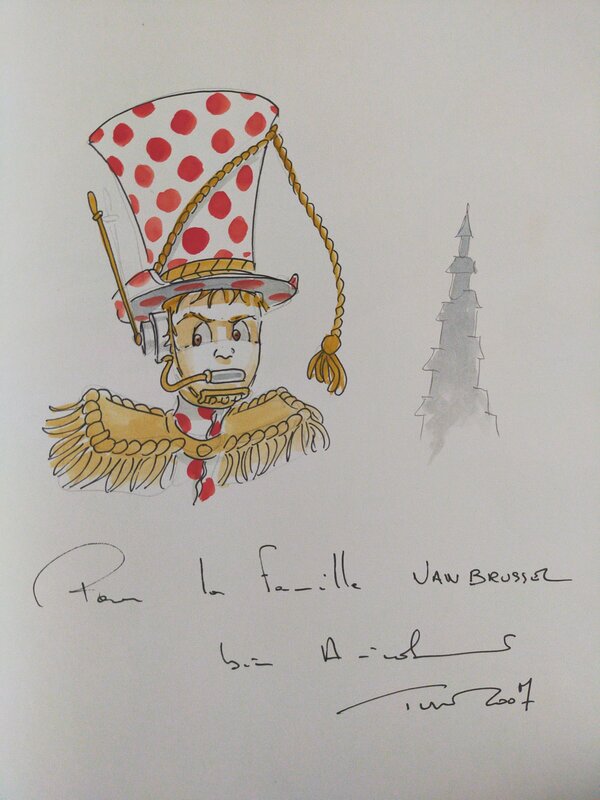 Pour la famille VAN BRUSSEL
bien Amicalement
2007